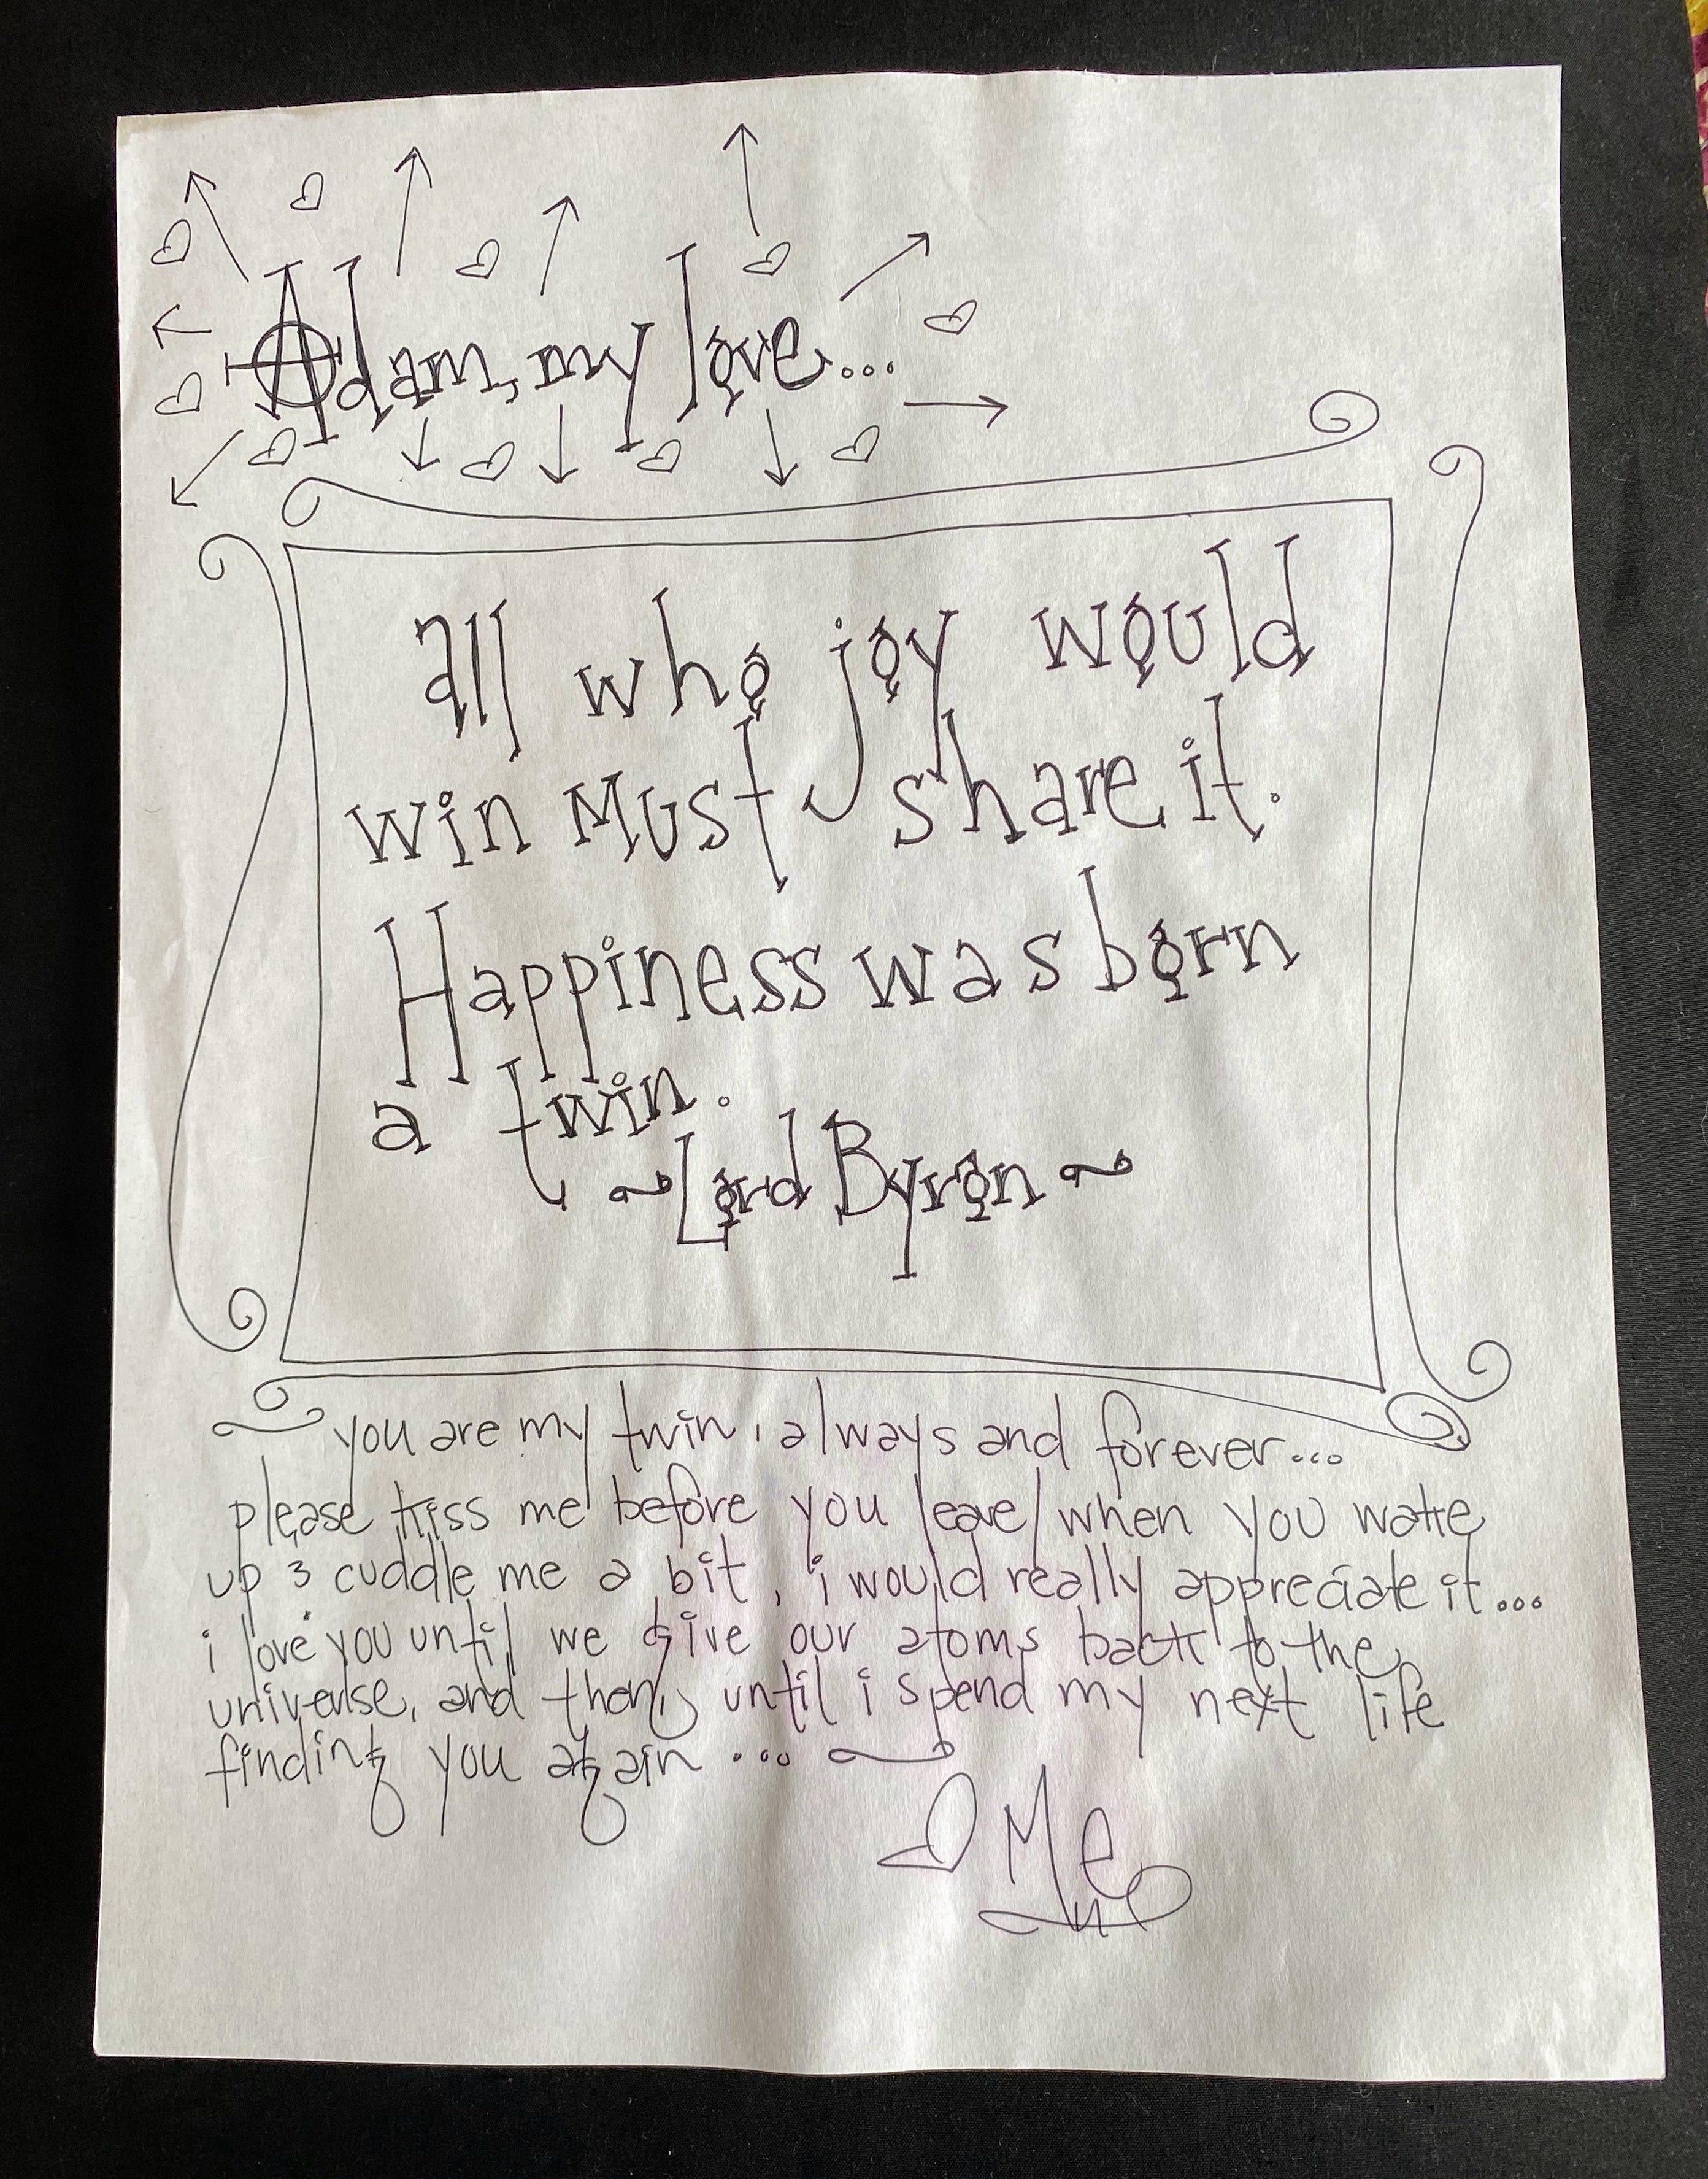 Adam, my love...
all who joy would
win Must share it.
Happiness was born
a twin.
~Lord Byron~
you are my twin, always and forever...
please kiss me before you leave/when you wake
up & cuddle me a bit, i would really appreciate it...
i love you until we give our atoms back to the
universe, and then, until i spend my next life
finding you again...
♡ Me